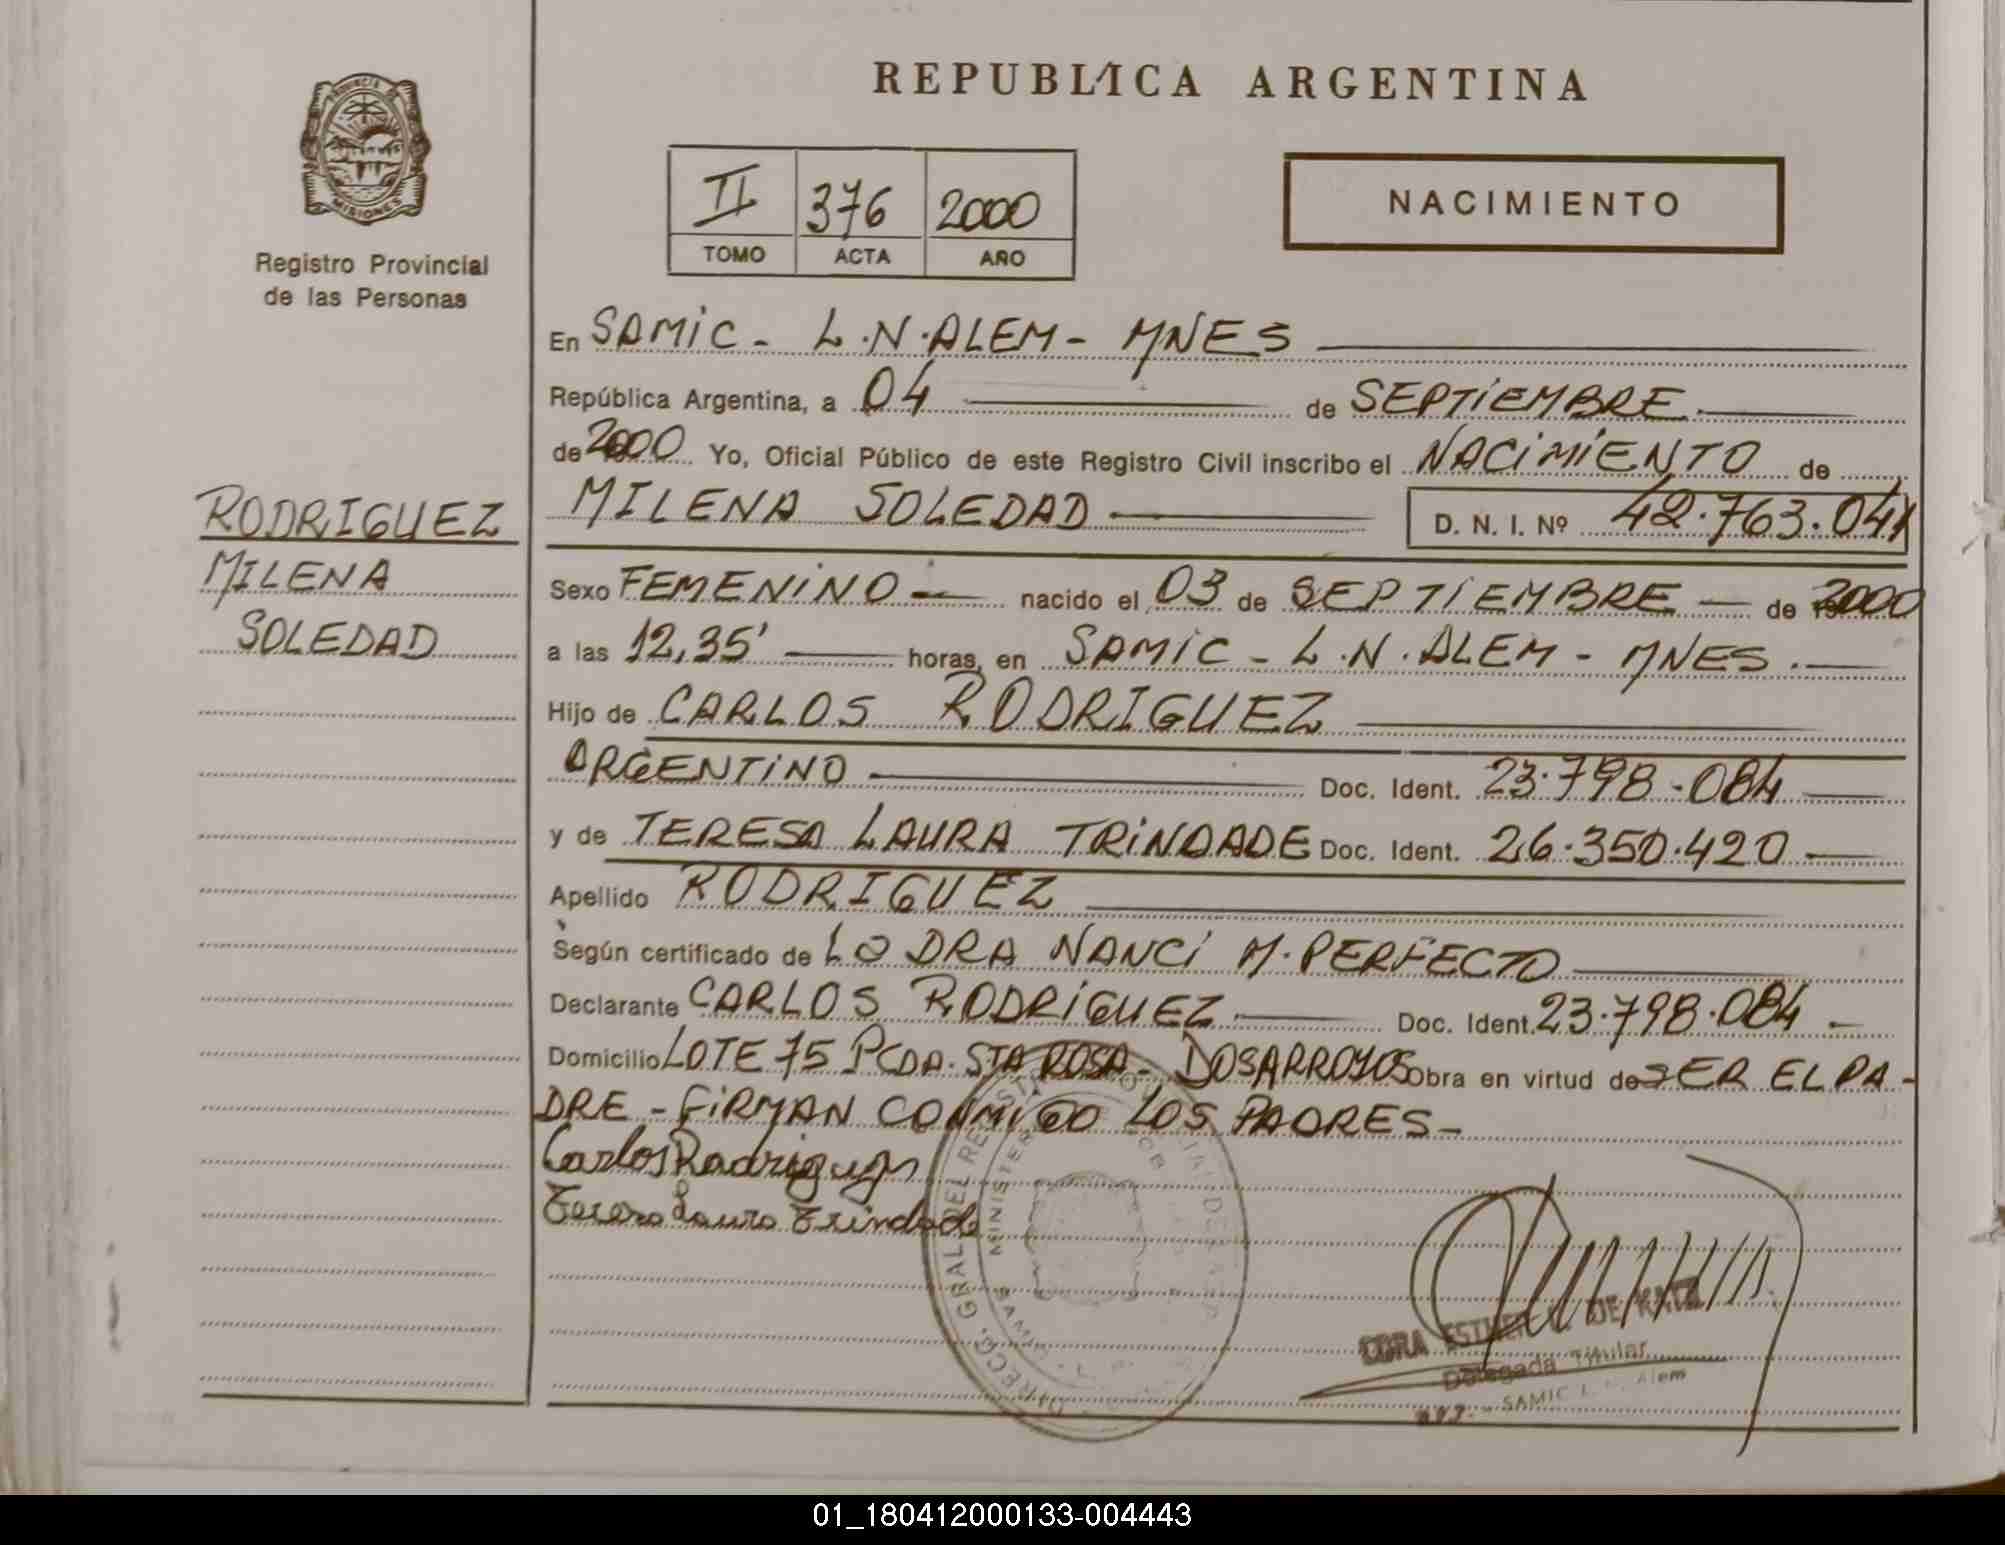 REPUBLICA ARGENTINA
PROVINCIA DE
MISIONES
Registro Provincial
de las Personas
II 376 2000
TOMO ACTA AÑO
NACIMIENTO
En SAMIC - L.N.ALEM - MNES
República Argentina, a 04 de SEPTIEMBRE
de 2000 Yo, Oficial Público de este Registro Civil inscribo el NACIMIENTO de
MILENA SOLEDAD D. N. I. Nº 42.763.041
RODRIGUEZ
MILENA
SOLEDAD
Sexo FEMENINO nacido el 03 de SEPTIEMBRE de 2000
a las 12,35' horas, en SAMIC - L.N.ALEM - MNES.
Hijo de CARLOS RODRIGUEZ
ARGENTINO Doc. Ident. 23.798.084
y de TERESA LAURA TRINDADE Doc. Ident. 26.350.420
Apellido RODRIGUEZ
Según certificado de LA DRA NANCI M. PERFECTO
Declarante CARLOS RODRIGUEZ Doc. Ident. 23.798.084
Domicilio LOTE 75 PCDA. STA ROSA - DOS ARROYOS Obra en virtud de SER EL PA-
DRE - FIRMAN CONMIGO LOS PADRES -
Carlos Rodriguez
Teresa Laura Trindade
DIRECC. GRAL DEL
MINISTER
ESTHER DE KATZ
Delegada Titular
SAMIC L. N. Alem
01_180412000133-004443